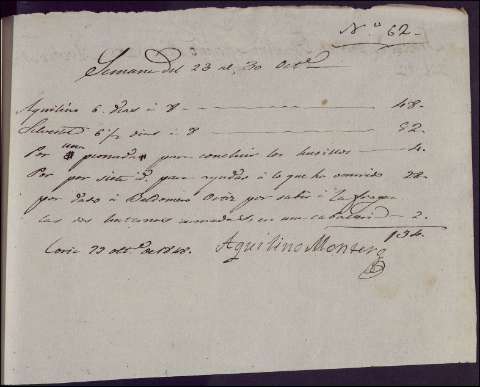 N.º 62-
Semana del 23 al 30 Octe
Aquilino 6. dias à 8 — 48-
Silvestre 6 1/2 dias à 8 — 52-
Por una peonada para concluir los husillos — 4.
Por por siete id. para ayudas à lo que ha ocurrido 28-
por dado à Baldomero Ortiz por subir à la fragua
las dos en una caballería — 2.
134.
Coria 30 de 1848. Aquilino Montero